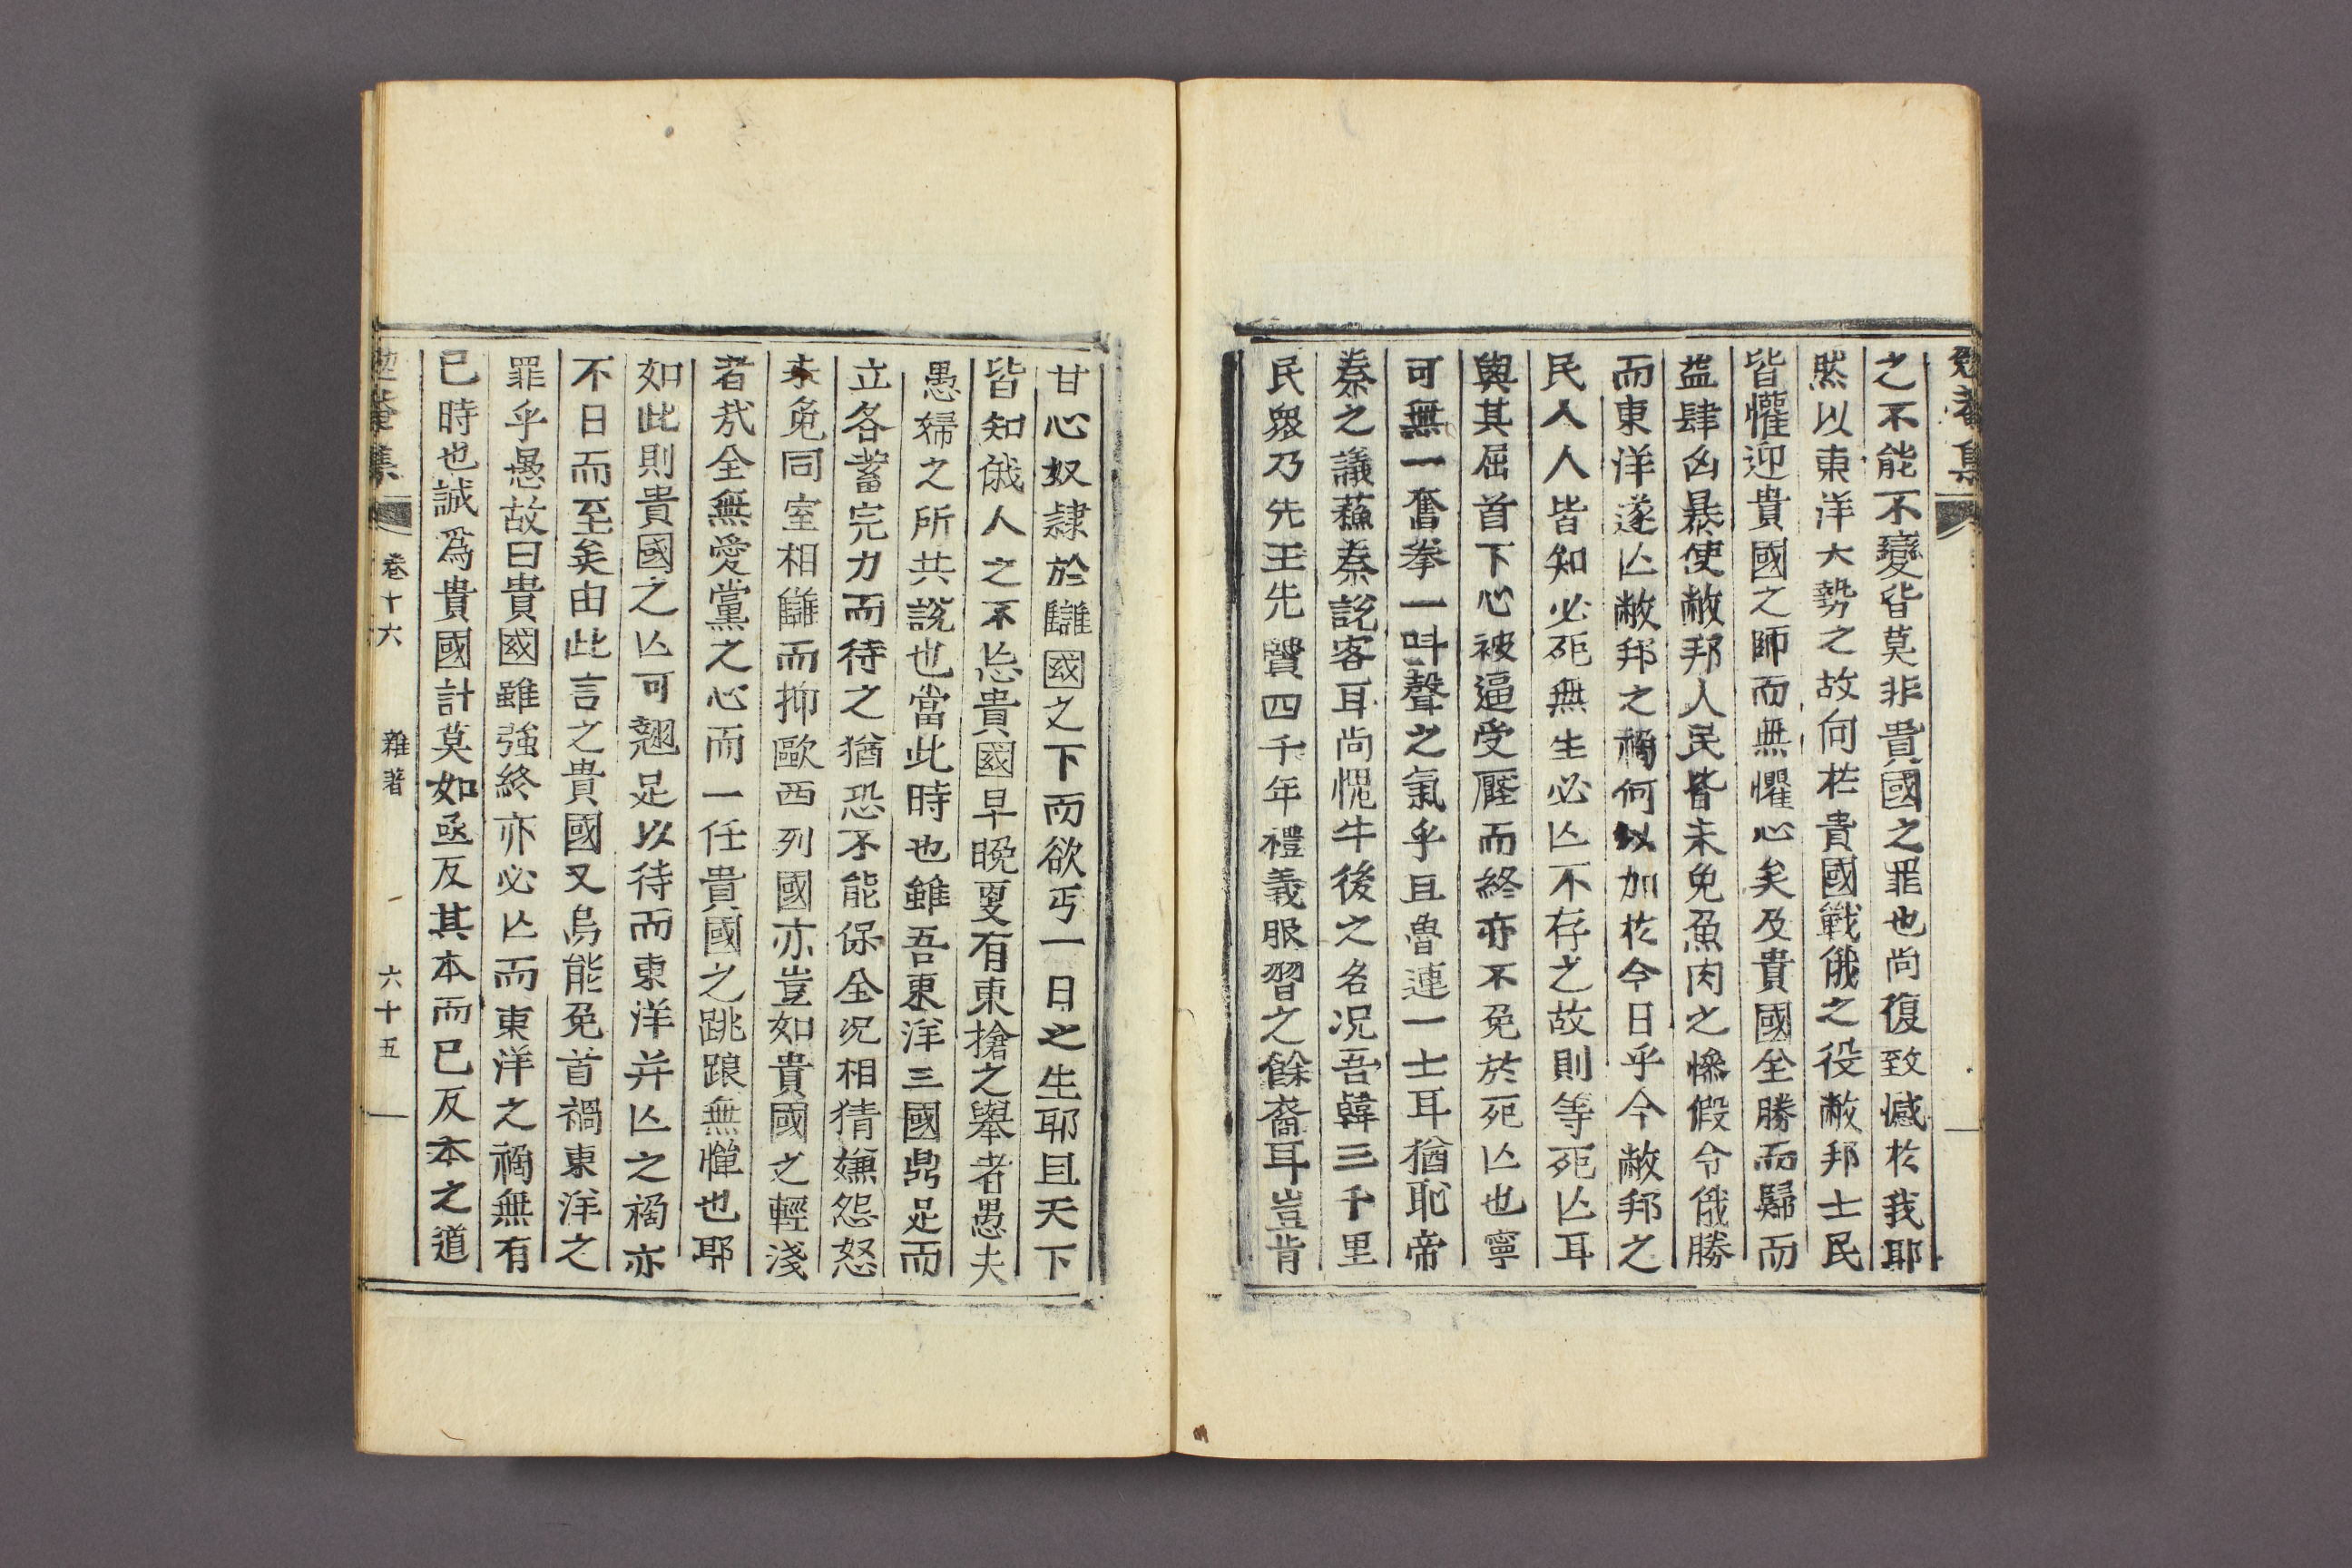 勉菴集
之不能不變皆莫非貴國之罪也尚復致憾於我耶
然以東洋大勢之故向於貴國戰俄之役敝邦士民
皆懽迎貴國之師而無懼心矣及貴國全勝而歸而
益肆凶暴使敝邦人民皆未免魚肉之慘假令俄勝
而東洋遂亾敝邦之禍何以加於今日乎今敝邦之
民人人皆知必死無生必亾不存之故則等死亾耳
與其屈首下心被逼受壓而終亦不免於死亾也寧
可無一奮拳一叫聲之氣乎且魯連一士耳猶恥帝
秦之議蘇秦說客耳尚愧牛後之名况吾韓三千里
民衆乃先王先賢四千年禮義服習之餘裔耳豈肯
甘心奴隷於讎國之下而欲丐一日之生耶且天下
皆知俄人之不忘貴國早晩更有東搶之擧者愚夫
愚婦之所共說也當此時也雖吾東洋三國鼎足而
立各蓄完力而待之猶恐不能保全况相猜嫌怨怒
未免同室相讎而抑歐西列國亦豈如貴國之輕淺
者㦲全無愛黨之心而一任貴國之跳踉無憚也耶
如此則貴國之亾可翹足以待而東洋幷亾之禍亦
不日而至矣由此言之貴國又烏能免首禍東洋之
罪乎愚故曰貴國雖強終亦必亾而東洋之禍無有
已時也誠爲貴國計莫如亟反其本而已反本之道
勉菴集 卷十六 雜著 六十五